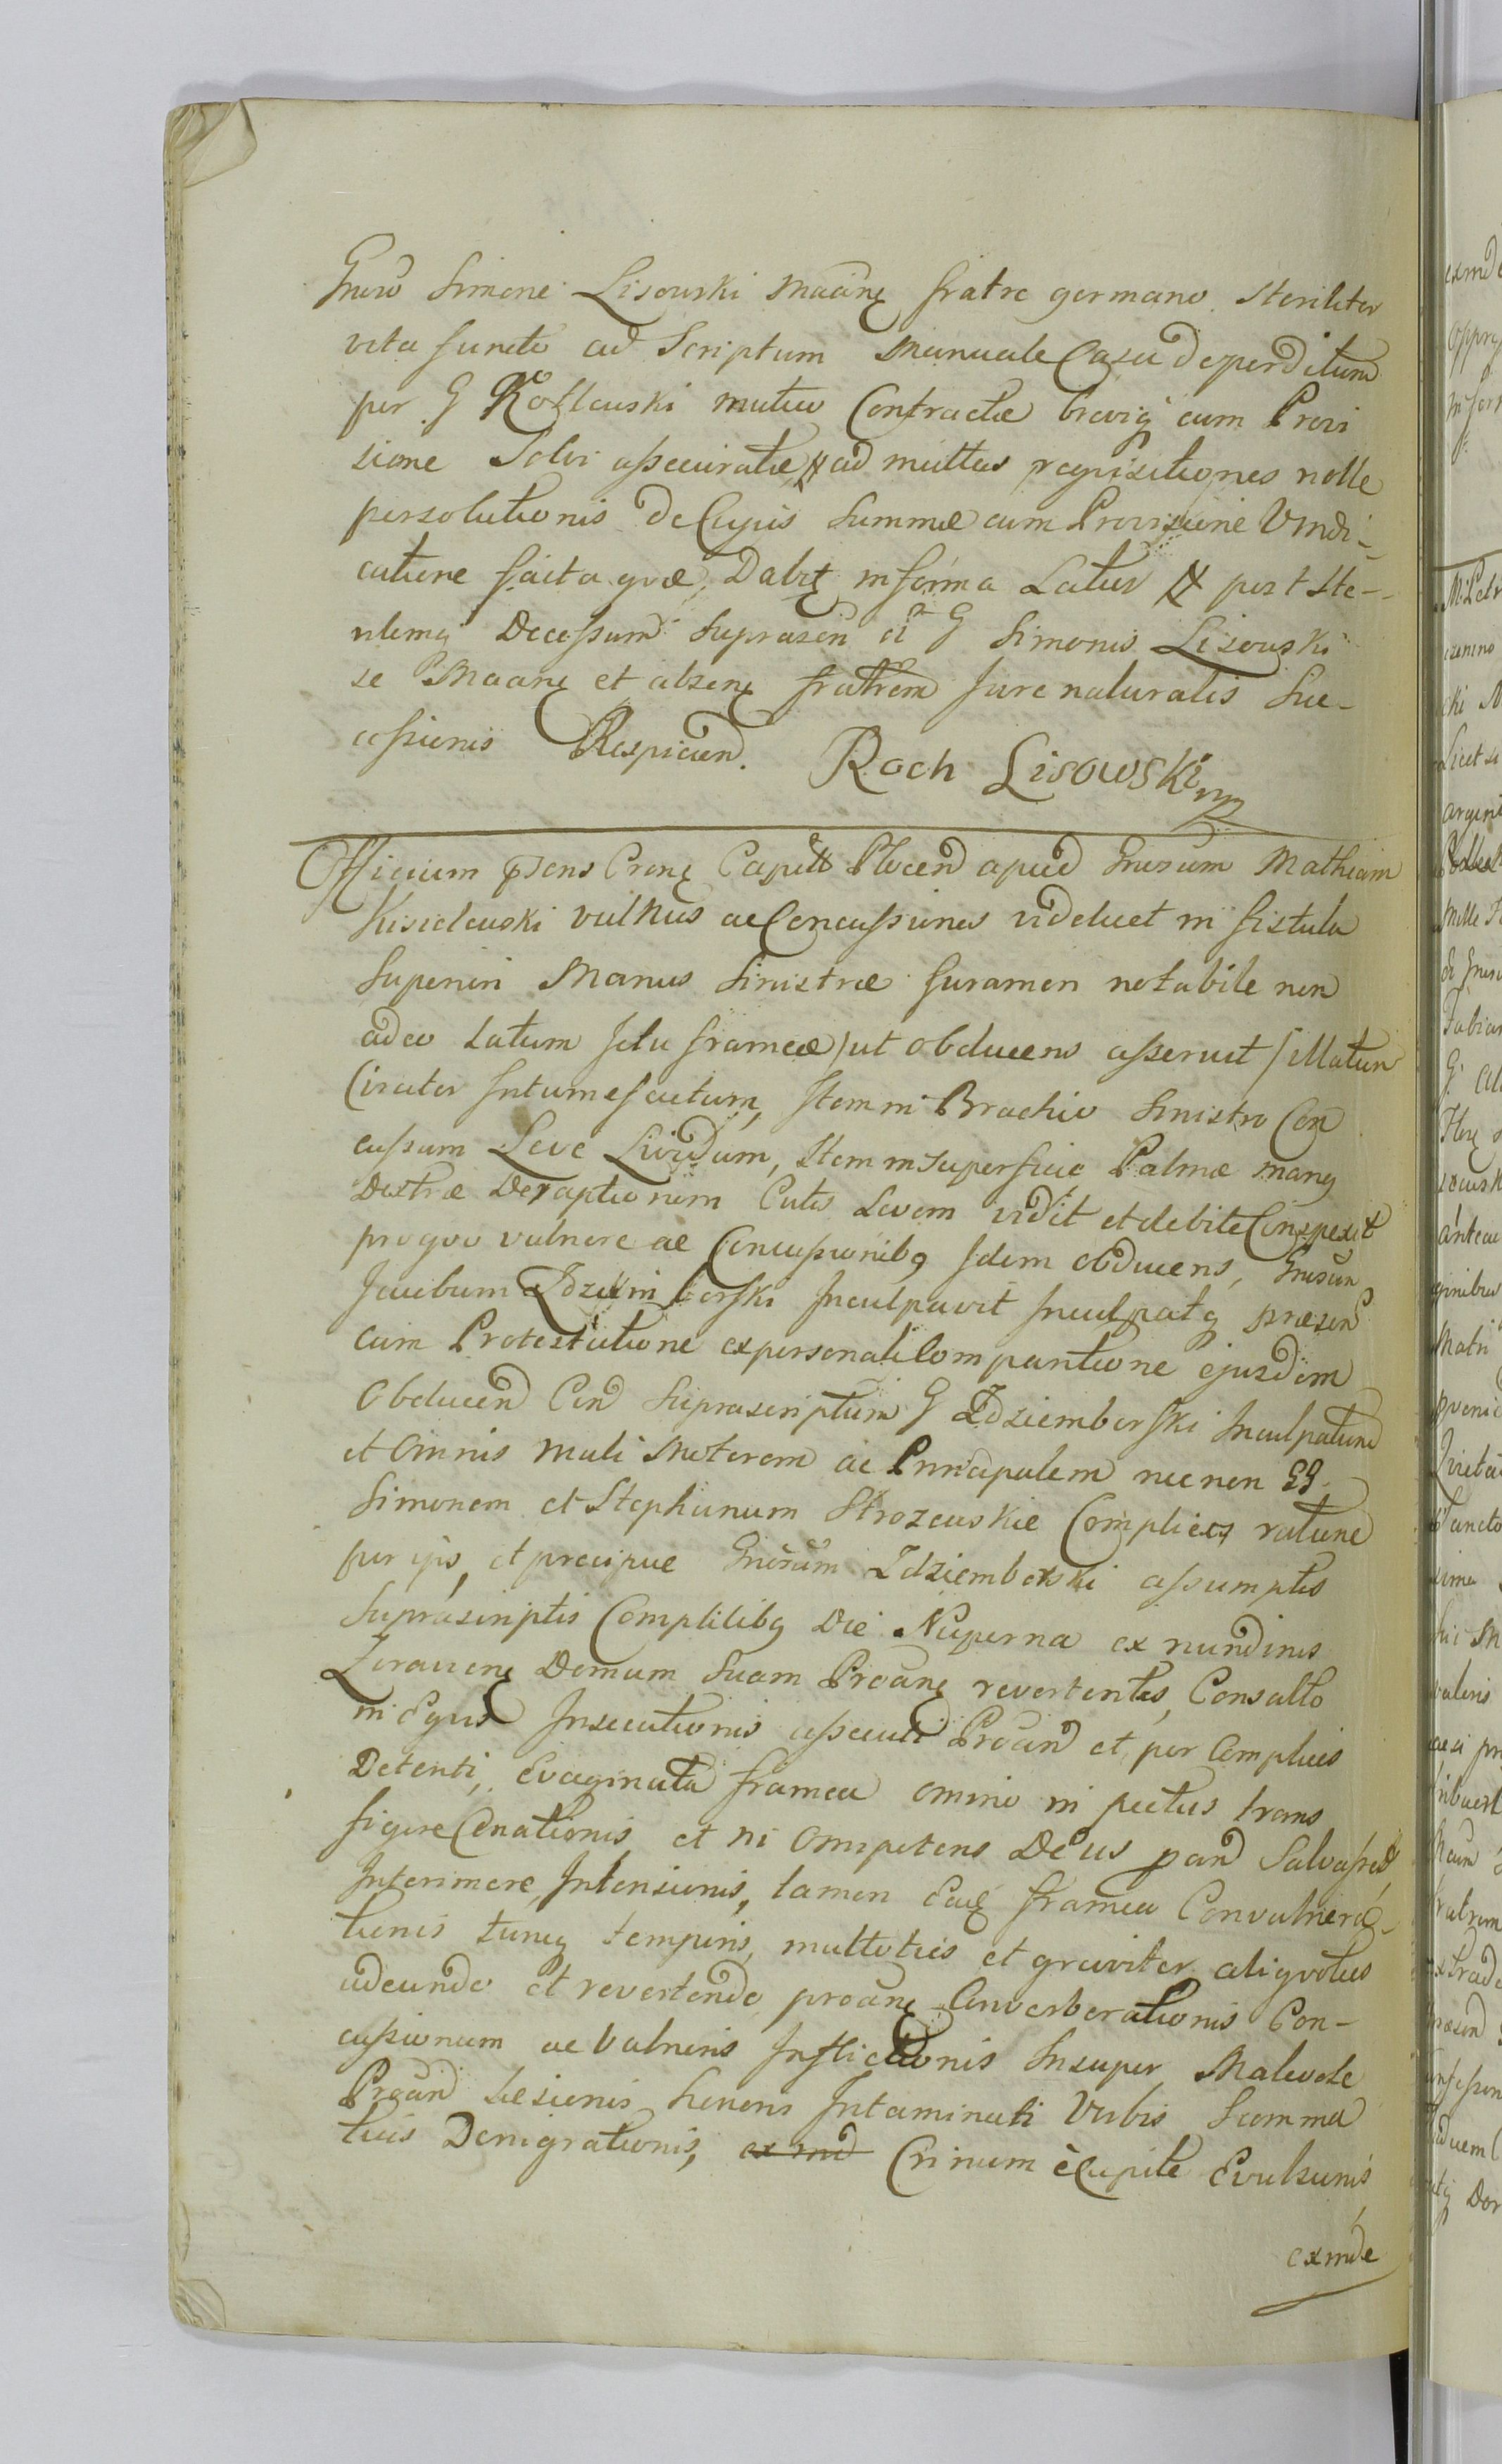 Gnero Simone Lisowski Maanę fratre germano Steriliter
vita functo ad Scriptum Manuale Casu deperditum
per G Kotlewski mutuo Contractæ brevią cum Provi
sione Solvi assecuratæ, ad multas requisitiones nolle
persolutionis de Cujus Summæ cum Provisione Vindi-
catione facta quæ, Dabitę in forma Latius post Ste-
rilemą Decessum suprascri G Simonis Lisowski
se Maanę et absenę fratrem Jure naturalis Suc-
cessionis Respicien. Roch Lisowski mp
Officium psens Crenę Capitt Plocen apud Gnerum Mathiam
Kisielewski vulnus ac Concussiones videlicet in fistula
Superiori Manus Sinistræ foramen notabile non
adeo Latum Ictu frameæ / ut obducens asseruit / illatum
Circiter Intumefactum, Item in Brachio Sinistro Con
cussum Leve Lividum, Item in superficie Palmæ maną
Dextræ Deraptionem Cutis Levem vidit et debite Conspexit
pro quo vulnere ac Concussionibą Idem obducens, Gnerum
Jacobum Zdziemborski Inculpavit Inculpatą præsen
cum Protestatione ex personali Comparitione ejusdem
Obducen Con Suprascriptum G Zdziemborski Inculpatum
et Omnis Mali Motorem ac Principalem nec non GG
Simonem et Stephanum Strozewskie Complices ratione
per ips, et præcipue Gnerum Zdziemborski assumptis
Suprascriptis Complicibą Die Nuperna ex nundinis
Zuravienę Domum Suam Proanę revertentis, Consulto
in Equis Insecutionis assecuti Proan et per Complices
Detenti, Evaginata framea omnino in pectus trans
figere Conationis et ni Omnipotens Deus pan Salvasset
Interimere Intensionis, tamen Eadę framea Convulnera-
tionis tuncą temporis, multoties et graviter aliqvoties
adeundo et revertendo, proanę Converberationis Con-
cussionum ac Vulneris Inflictionis Insuper Malevole
Proan Læsionis honoris Intaminati Verbis Summa
tius Denigrationis, ex ind Crinium è Capite Evulsionis
exinde